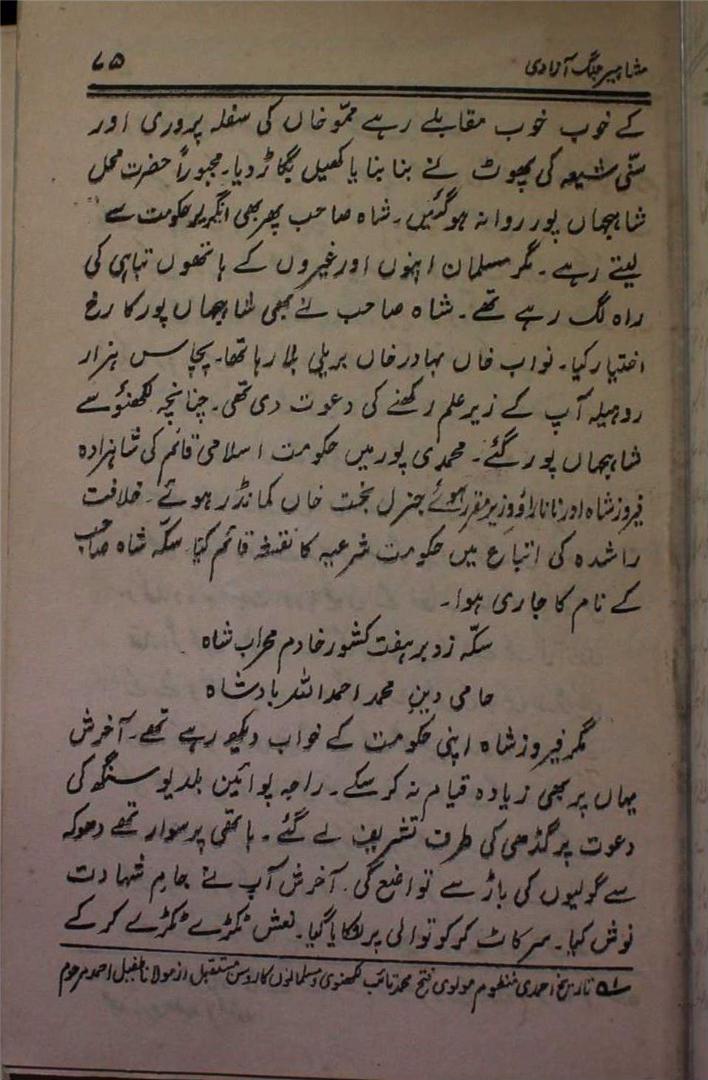 مشاہیر جنگ آزادی ۷۵
کے خوب خوب مقابلے رہے ممّو خاں کی سفلہ پروری اور
سنّی شیعہ کی پھوٹ نے بنا بنایا کھیل بگاڑ دیا۔ مجبوراً حضرت محل
شاہجہاں پور روانہ ہوگئیں۔ شاہ صاحب پھر بھی انگریز حکومت سے
لیتے رہے۔ مگر مسلمان اپنوں اور غیروں کے ہاتھوں تباہی کی
راہ لگ رہے تھے۔ شاہ صاحب نے بھی شاہجہاں پور کا رخ
اختیار کیا۔ نواب خاں بہادر خاں بریلی بلا رہا تھا۔ پچاس ہزار
روہیلہ آپ کے زیر علم رکھنے کی دعوت دی تھی۔ چنانچہ لکھنؤ سے
شاہجہاں پور گئے۔ محمدی پور میں حکومت اسلامی قائم کی شاہزادہ
فیروز شاہ اور نانا راؤ وزیر مقرر ہوئے جنرل بخت خاں کمانڈر ہوئے۔ خلافت
راشدہ کی اتباع میں حکومت شرعیہ کا نقشہ قائم کیا سکّہ شاہ صاحب
کے نام کا جاری ہوا۔
سکّہ زد بر ہفت کشور خادم محراب شاہ
حامی دین محمد احمد اللہ بادشاہ
مگر فیروز شاہ اپنی حکومت کے خواب دیکھ رہے تھے۔ آخرش
یہاں پر بھی زیادہ قیام نہ کر سکے۔ راجہ پوائین بلدیو سنگھ کی
دعوت پر گڈھی کی طرف تشریف لے گئے۔ ہاتھی پر سوار تھے دھوکہ
سے گولیوں کی باڑ سے تواضع کی۔ آخرش آپ نے جام شہادت
نوش کیا۔ سر کاٹ کر کوتوالی پر لٹکایا گیا۔ نعش ٹکڑے ٹکڑے کر کے
۱؎ تاریخ احمدی منظوم مولوی فتح محمد تائب لکھنوی و مسلمانوں کا روشن مستقبل از مولانا طفیل احمد مرحوم